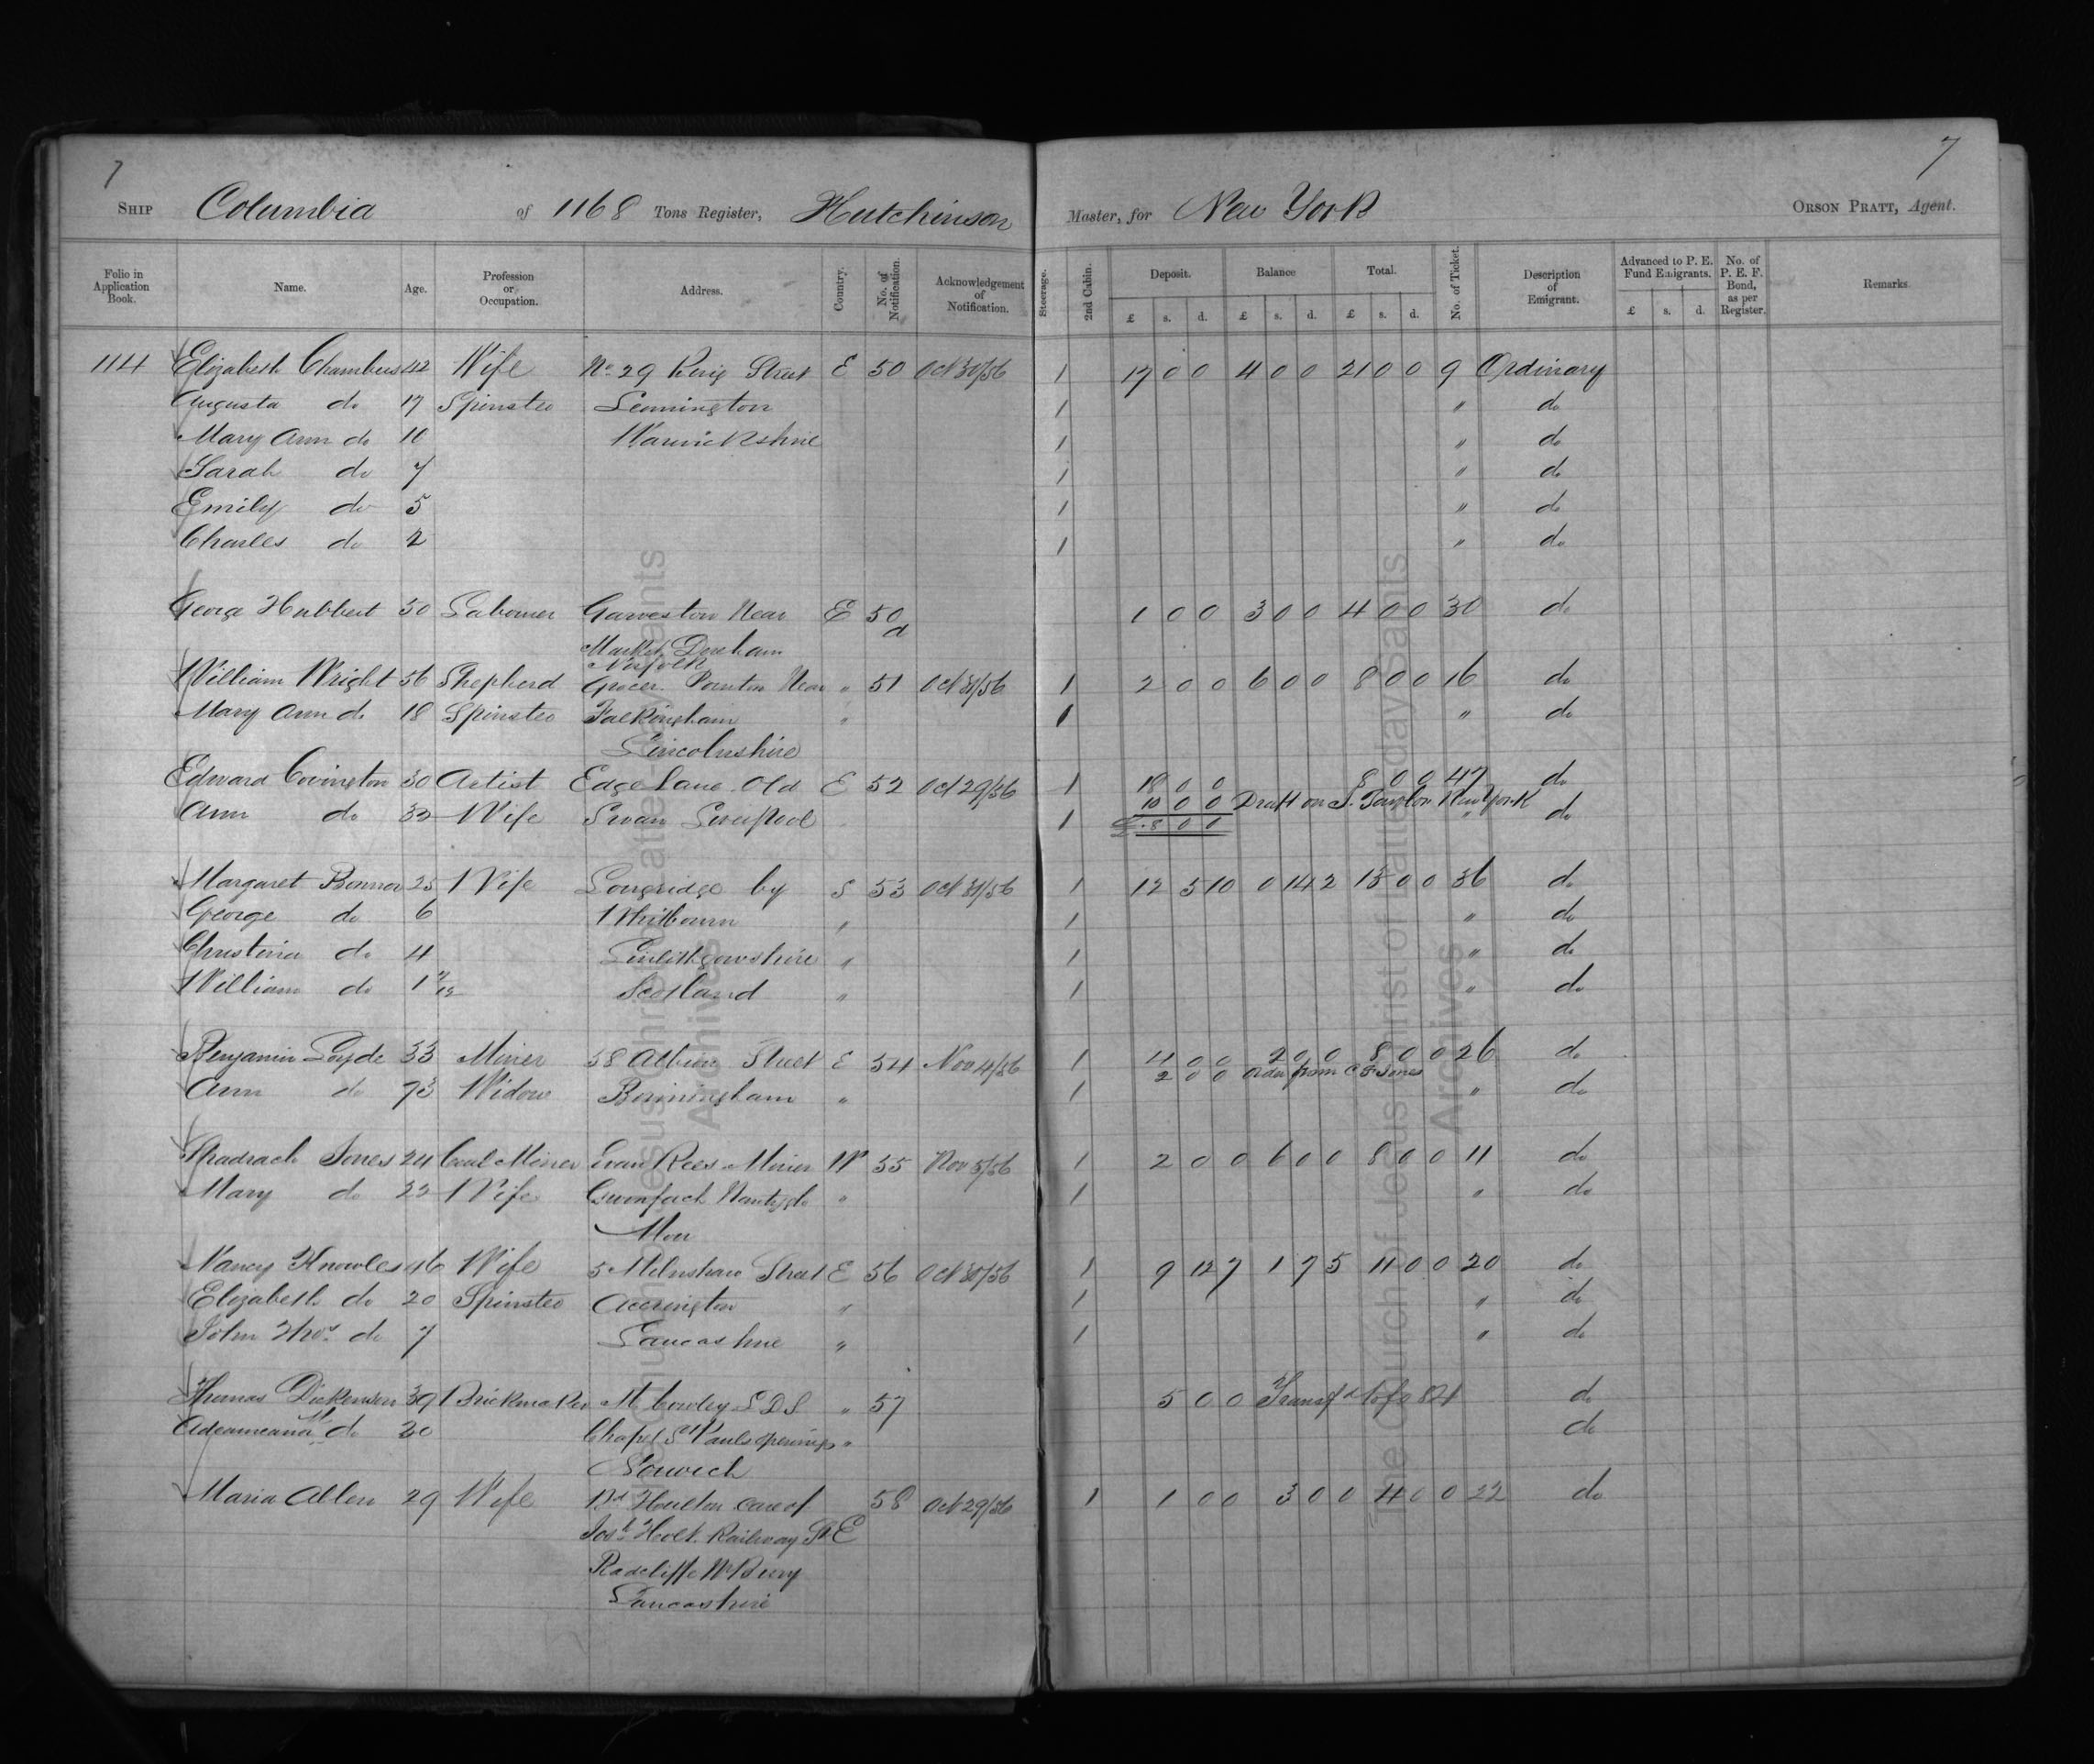 7
7
SHIP Columbia of 1168 Tons Register, Hutchinson Master, for New York ORSON PRATT, Agent.
Folio in Application Book. Name. Age. Profession or Occupation. Address. Country. No. of Notification. Acknowledgement of Notification. Steerage. 2nd Cabin. Deposit. Balance Total. No. of Ticket. Description of Emigrant. Advanced to P. E. Fund Emigrants. No. of P. E. F. Bond, as per Register. Remarks.
£ s. d. £ s. d. £ s. d. £ s. d.
114 Elizabeth Chambers 42 Wife No 29 King Street E 50 Oct 30/56 1 17 0 0 4 0 0 21 0 0 9 Ordinary
Augusta do 17 Spinster Leamington 1 " do
Mary Ann do 10 Warwickshire 1 " do
Sarah do 7 1 " do
Emily do 5 1 " do
Charles do 2 1 " do
George Hubbert 30 Labourer Garveston Near E 50 d 1 0 0 3 0 0 4 0 0 30 do
Market Dereham
Norfolk
William Wright 56 Shepherd Grocer Pointon Near " 51 Oct 31/56 1 2 0 0 6 0 0 8 0 0 16 do
Mary Ann do 18 Spinster Falkingham " 1 " do
Lincolnshire
Edward Covington 30 Artist Edge Lane Old E 52 Oct 29/56 1 18 0 0 8 0 0 47 do
10 0 0 Draft on J. Taylor New York
Ann do 32 Wife Swan Liverpool 1 £ 8 0 0 " do
Margaret Bonnor 25 Wife Longridge by S 53 Oct 31/56 1 12 5 10 0 14 2 13 0 0 36 do
George do 6 Whitbourn " 1 " do
Christina do 4 Linlithgowshire " 1 " do
William do 1 Scotland " 1 " do
Benjamin Loyde 33 Miner 58 Albion Street E 54 Nov 4/56 1 4 0 0 2 0 0 8 0 0 26 do
2 0 0 Order from C F Jones
Ann do 73 Widow Birmingham " 1 " do
Shadrach Jones 24 Coal Miner Evan Rees Miner W 55 Nov 5/56 1 2 0 0 6 0 0 8 0 0 11 do
Mary do 22 Wife Nantyglo " 1 " do
Mon
Nancy Knowles 46 Wife 5 Milnshaw Street E 56 Oct 30/56 1 9 12 7 1 7 5 11 0 0 20 do
Elizabeth do 20 Spinster Accrington " 1 " do
John Thos. do 7 Lancashire " 1 " do
Thomas Dickenson 39 Brickmaker M Cowley L D S " 57 5 0 0 do
do 30 Chapel St Pauls Opening " do
Norwich
Maria Allen 29 Wife Houlton care of 58 Oct 29/56 1 1 0 0 3 0 0 4 0 0 22 do
Josh Holt Railway St E
Radcliffe Nr Bury
Lancashire
The Church of Jesus Christ of Latter-day Saints
Archives
The Church of Jesus Christ of Latter-day Saints
Archives